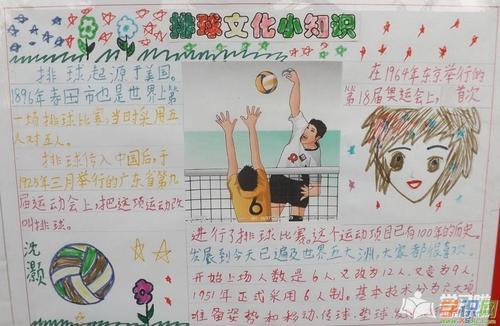 排球文化小知识
排球起源于美国。
1896年春田市也是世界上第
一场排球比赛，当时采用五
人对五人。
排球传入中国后，于
1925年三月举行的广东省第九
届运动会上，把这项运动改
叫排球。
沈
灏
在1964年东京举行的
第18届奥运会上，首次
进行了排球比赛。这个运动项目已有100年的历史。
发展到今天已遍及世界五大洲，大家都很喜欢。
开始上场人数是6人，又改为12人，又变为9人，
1951年正式采用6人制。基本技术分为六大项
准备姿势和移动、传球、垫球
6
学识网